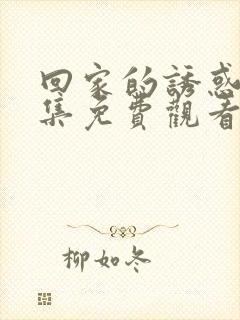 回家的誘惑
集免費觀看
柳如冬